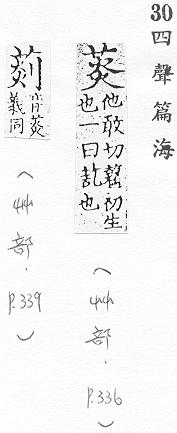 30 四聲篇海
菼 他敢切初生
也一曰乱也
(艸部.P.336)
音菼
義同
(艸部.P.339)